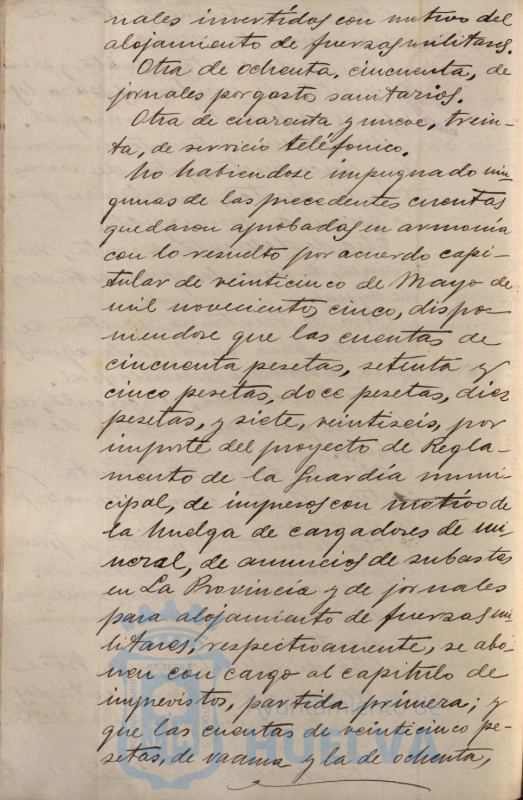 nales invertidos con motivo del
alojamiento de fuerzas militares.
Otra de ochenta, cincuenta, de
jornales por gastos sanitarios.
Otra de cuarenta y nueve, trein-
ta, de servicio telefónico.
No habiendose impugnado nin-
gunas de las precedentes cuentas
quedaron aprobadas en armonía
con lo resuelto por acuerdo capi-
tular de veinticinco de Mayo de
mil novecientos cinco, dispo-
niendose que las cuentas de
cincuenta pesetas, setenta y
cinco pesetas, doce pesetas, diez
pesetas, y siete, veintiseis, por
importe del proyecto de Regla-
mento de la Guardia muni-
cipal, de impresos con motivo de
la huelga de cargadores de mi
neral, de anuncios de subastas
en La Provincia y de jornales
para alojamiento de fuerzas mi
litares, respectivamente, se abo-
nen con cargo al capitulo de
imprevistos, partida primera; y
que las cuentas de veinticinco pe-
setas, de vacuna y la de ochenta,
Ayuntamiento de
HUELVA